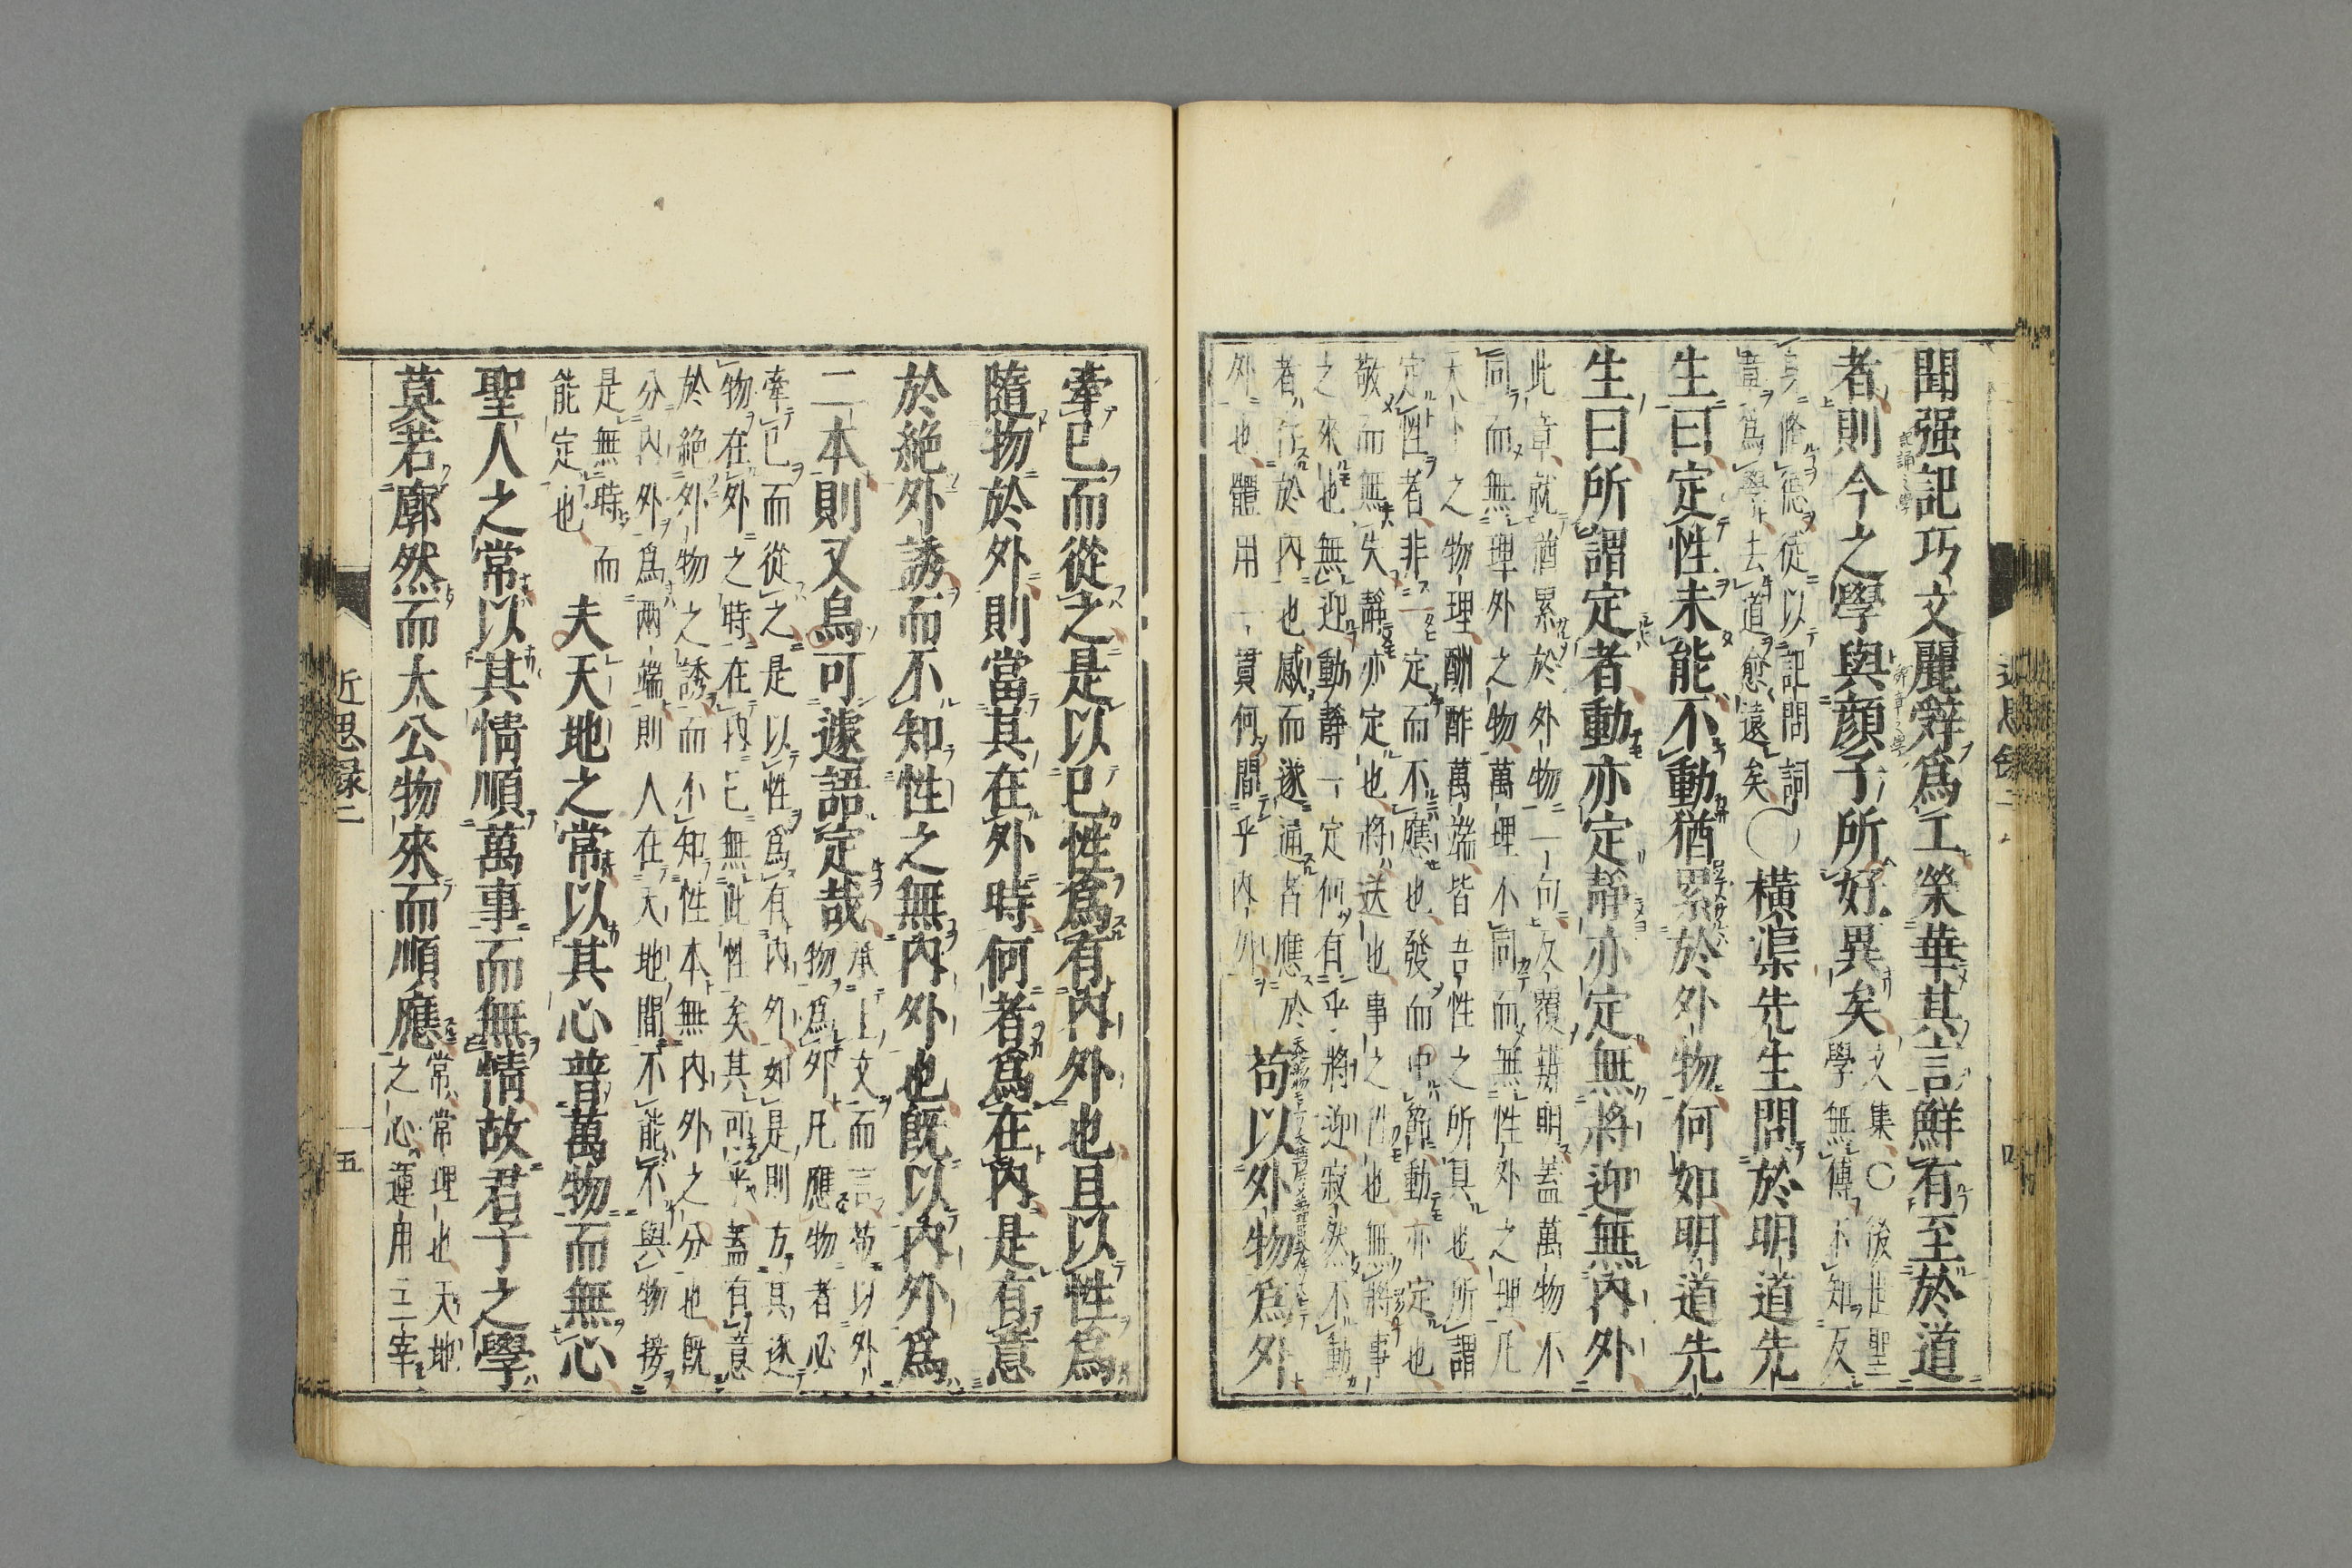 聞强記巧文麗辭爲工榮華其言鮮有至於道
者則今之學與顔子所好異矣
文集○後世聖
學無傳不知反
身脩德徒以記問詞
章爲學去道愈遠矣
○橫渠先生問於明道先
生曰定性未能不動猶累於外物何如明道先
生曰所謂定者動亦定靜亦定無將迎無內外
此章就猶累於外物一句反覆辯明蓋萬物不
同而無理外之物萬理不同而無性外之理凡
天下之物理酬酢萬端皆吾性之所具也所謂
定性者非一定而不應也發而中節動亦定也
敬而無失靜亦定也將送也事之
之來也無迎動靜一定何有乎將迎寂然不動
者存於內也感而遂通者應於
外也體用一貫何間乎內外
苟以外物爲外
牽己而從之是以己性爲有內外也且以性爲
隨物於外則當其在外時何者爲在內是有意
於絶外誘而不知性之無內外也旣以內外爲
二本則又烏可遽語定哉
承上文而言苟以外
物爲外凡應物者必
牽己而從之是以性爲有內外如是則方其逐
物在外之時在內已無此性矣其可乎蓋有意
於絶外物之誘而不知性本無內外之分也旣
分內外爲兩端則人在天地間不能不與物接
是無時而
能定也
夫天地之常以其心普萬物而無心
聖人之常以其情順萬事而無情故君子之學
莫若廓然而大公物來而順應
常常理也天地
之心運用主宰
近思録二
五